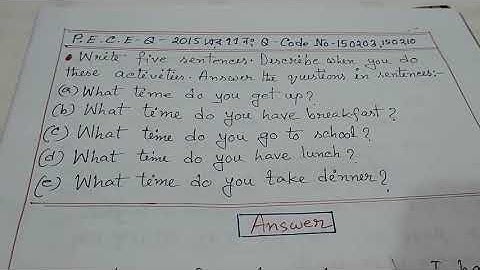 P.E.C.E-Q-2015 এর 11 নং Q-Code No-150203, 150210
• Write five sentences. Describe when you do
these activities. Answer the questions in sentences:-
(a) What time do you get up?
(b) What time do you have breakfast?
(c) What time do you go to school?
(d) What time do you have lunch?
(e) What time do you take dinner?
Answer